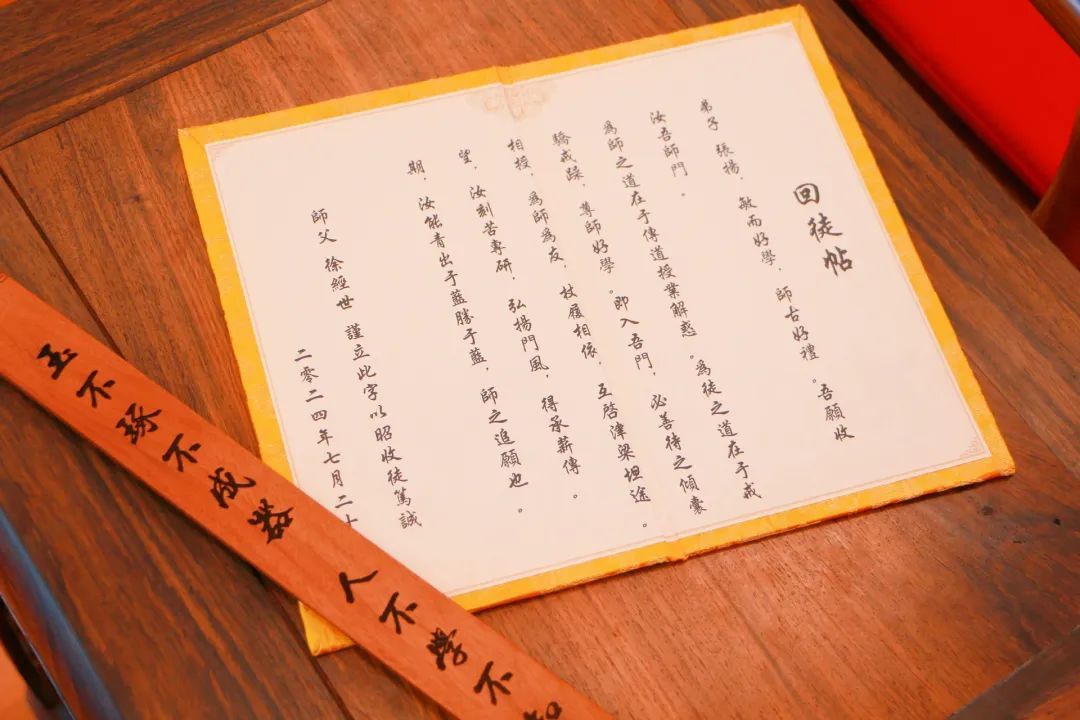 回徒帖
弟子 張揚，敏而好學，師古好禮。吾願收
汝吾師門。
為師之道在于傳道授業解惑。為徒之道在于戒
驕戒躁，尊師好學。即入吾門，必善待之傾囊
相授，為師為友，杖履相依，互啓津梁坦途。
望，汝刻苦專研，弘揚門風，得承薪傳。
期 汝能青出于藍勝于藍，師之追願也。
師父 徐經世 謹立此字以昭收徒篤誠
二零二四年七月二十
玉不琢不成器 人不學不